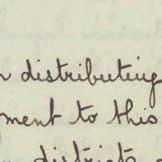 n distributing
gment to this
districts